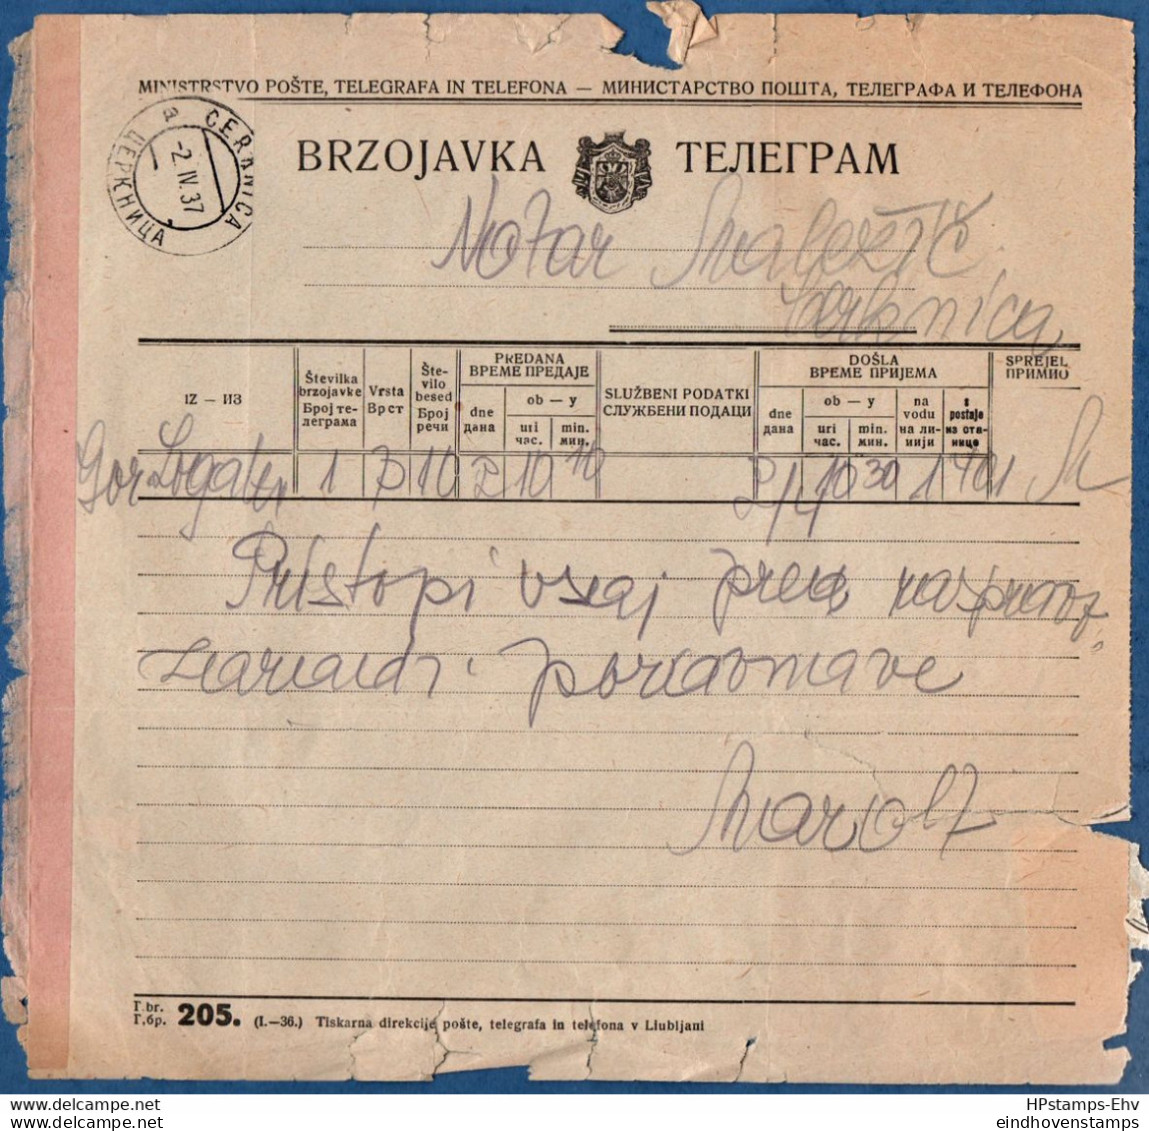 MINISTRSTVO POŠTE, TELEGRAFA IN TELEFONA — МИНИСТАРСТВО ПОШТА, ТЕЛЕГРАФА И ТЕЛЕФОНА
CERKNICA
a
-2.IV.37
ЦЕРКНИЦА
BRZOJAVKA ТЕЛЕГРАМ
Notar Maležič
Cerknica
IZ — ИЗ
Številka brzojavke
Број телеграма
Vrsta
Врст
Število besed
Број речи
PREDANA
ВРЕМЕ ПРЕДАЈЕ
dne
дана
ob — у
uri
час.
min.
мин.
SLUŽBENI PODATKI
СЛУЖБЕНИ ПОДАЦИ
DOŠLA
ВРЕМЕ ПРИЈЕМА
dne
дана
ob — у
uri
час.
min.
мин.
na vodu
на линији
s postaje
из станице
SPREJEL
ПРИМИО
Gor Logatec 1 7 10 2 10 10 2/4 10 30 1701 M
Pristopi vsaj pred
zaradi poravnave
Marolt
T. br.
Т. бр. 205. (I.—36.) Tiskarna direkcije pošte, telegrafa in telefona v Ljubljani
HPstamps-Ehv
eindhovenstamps